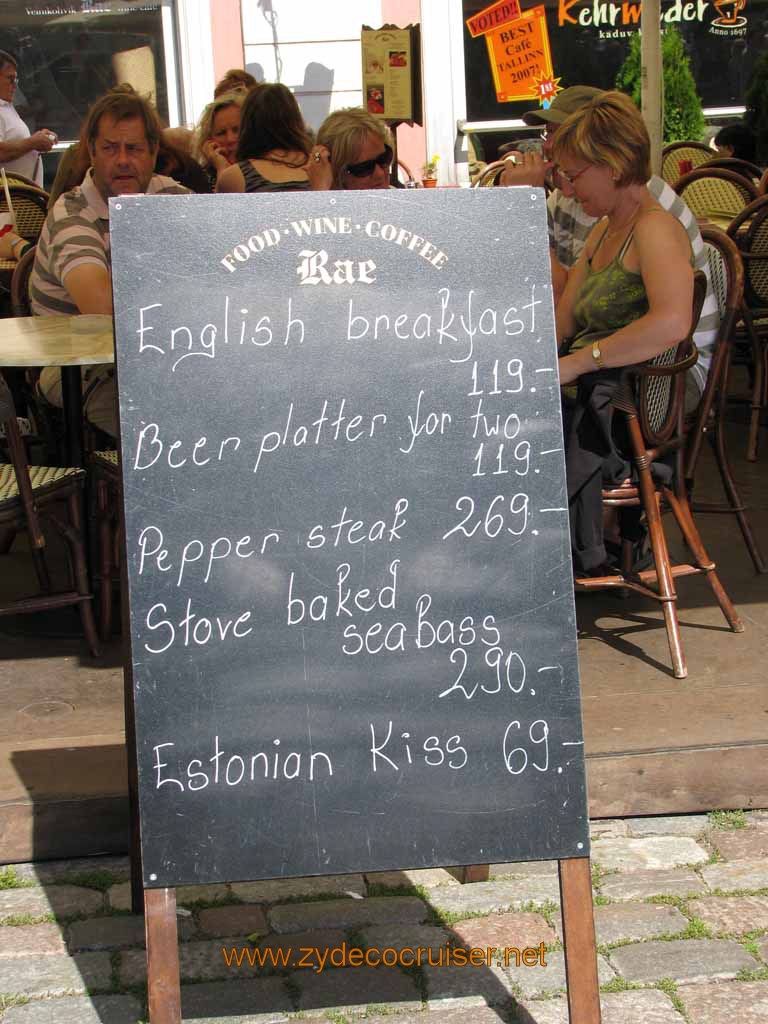 VOTED!!
BEST
Café
TALLINN
2007!
1st
Kehrwieder
Anno 1697
FOOD · WINE · COFFEE
Rae
English breakfast
119.-
Beer platter for two
119.-
Pepper steak 269.-
Stove baked
seabass
290.-
Estonian Kiss 69.-
www.zydecocruiser.net